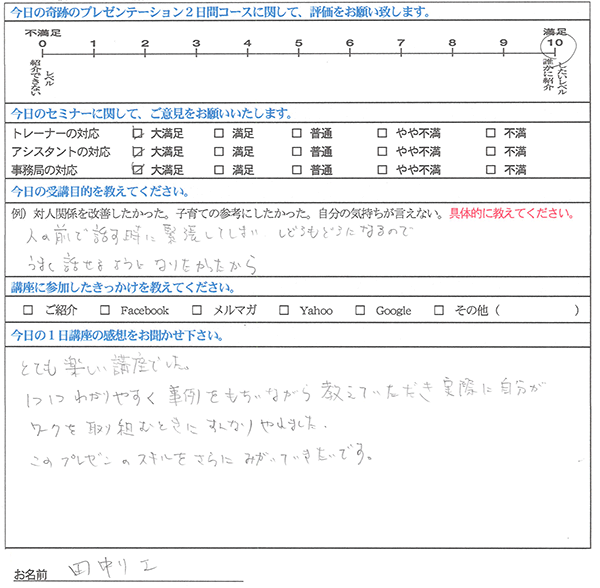 今日の奇跡のプレゼンテーション２日間コースに関して、評価をお願い致します。
不満足 満足
0 1 2 3 4 5 6 7 8 9 10
紹介できないレベル 誰かに紹介したいレベル
今日のセミナーに関して、ご意見をお願いいたします。
トレーナーの対応 ☑ 大満足 □ 満足 □ 普通 □ やや不満 □ 不満
アシスタントの対応 ☑ 大満足 □ 満足 □ 普通 □ やや不満 □ 不満
事務局の対応 ☑ 大満足 □ 満足 □ 普通 □ やや不満 □ 不満
今日の受講目的を教えてください。
例）対人関係を改善したかった。子育ての参考にしたかった。自分の気持ちが言えない。具体的に教えてください。
人の前で話す時に緊張してしまい しどろもどろになるので
うまく話せるように なりたかったから
講座に参加したきっかけを教えてください。
□ ご紹介 □ Facebook □ メルマガ □ Yahoo □ Google □ その他（ ）
今日の１日講座の感想をお聞かせ下さい。
とても楽しい講座でした。
1つ1つ わかりやすく 事例をもちいながら 教えていただき 実際に自分が
ワークを取り組むときに すんなりやれました.
このプレゼンのスキルをさらに みがいていきたいです。
お名前 田中リエ